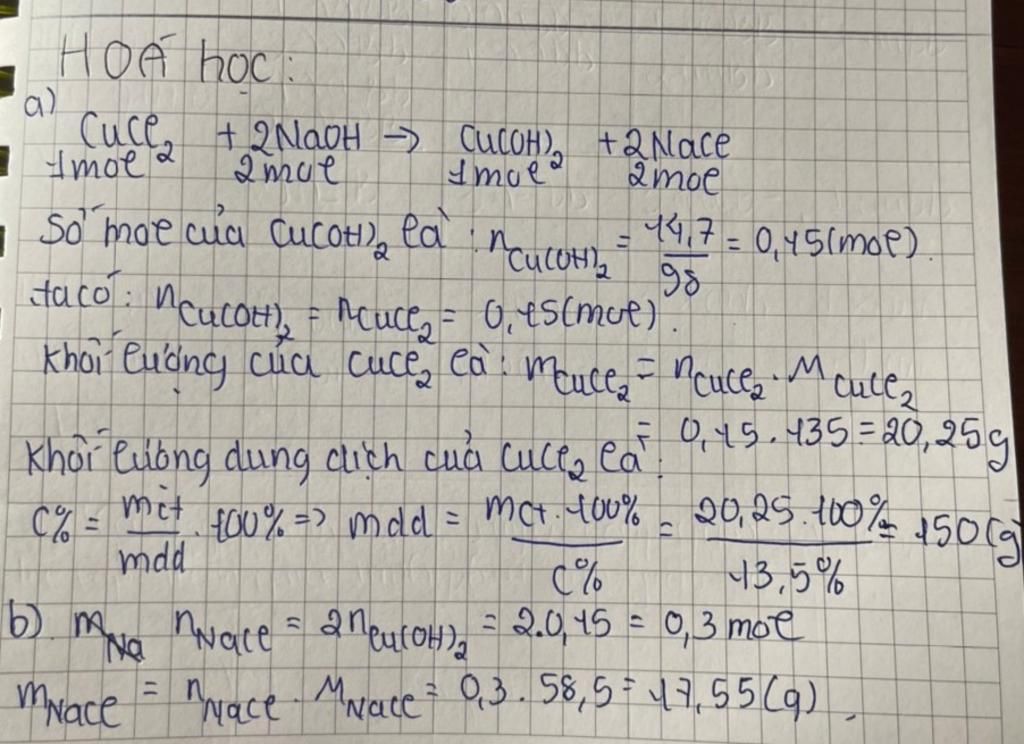 HOÁ học:
a)
CuCl₂ + 2NaOH → Cu(OH)₂ + 2NaCl
1mol 2mol 1mol 2mol
Số mol của Cu(OH)₂ là: nCu(OH)₂ = 14,7/98 = 0,15(mol).
ta có: nCu(OH)₂ = nCuCl₂ = 0,15(mol).
Khối lượng của CuCl₂ là: mCuCl₂ = nCuCl₂ . MCuCl₂
= 0,15 . 135 = 20,25g
Khối lượng dung dịch của CuCl₂ là:
C% = mct/mdd . 100% => mdd = mct . 100%/C% = 20,25 . 100%/13,5% = 150(g
b) mNa nNaCl = 2nCu(OH)₂ = 2.0,15 = 0,3 mol
mNaCl = nNaCl . MNaCl = 0,3 . 58,5 = 17,55(g).